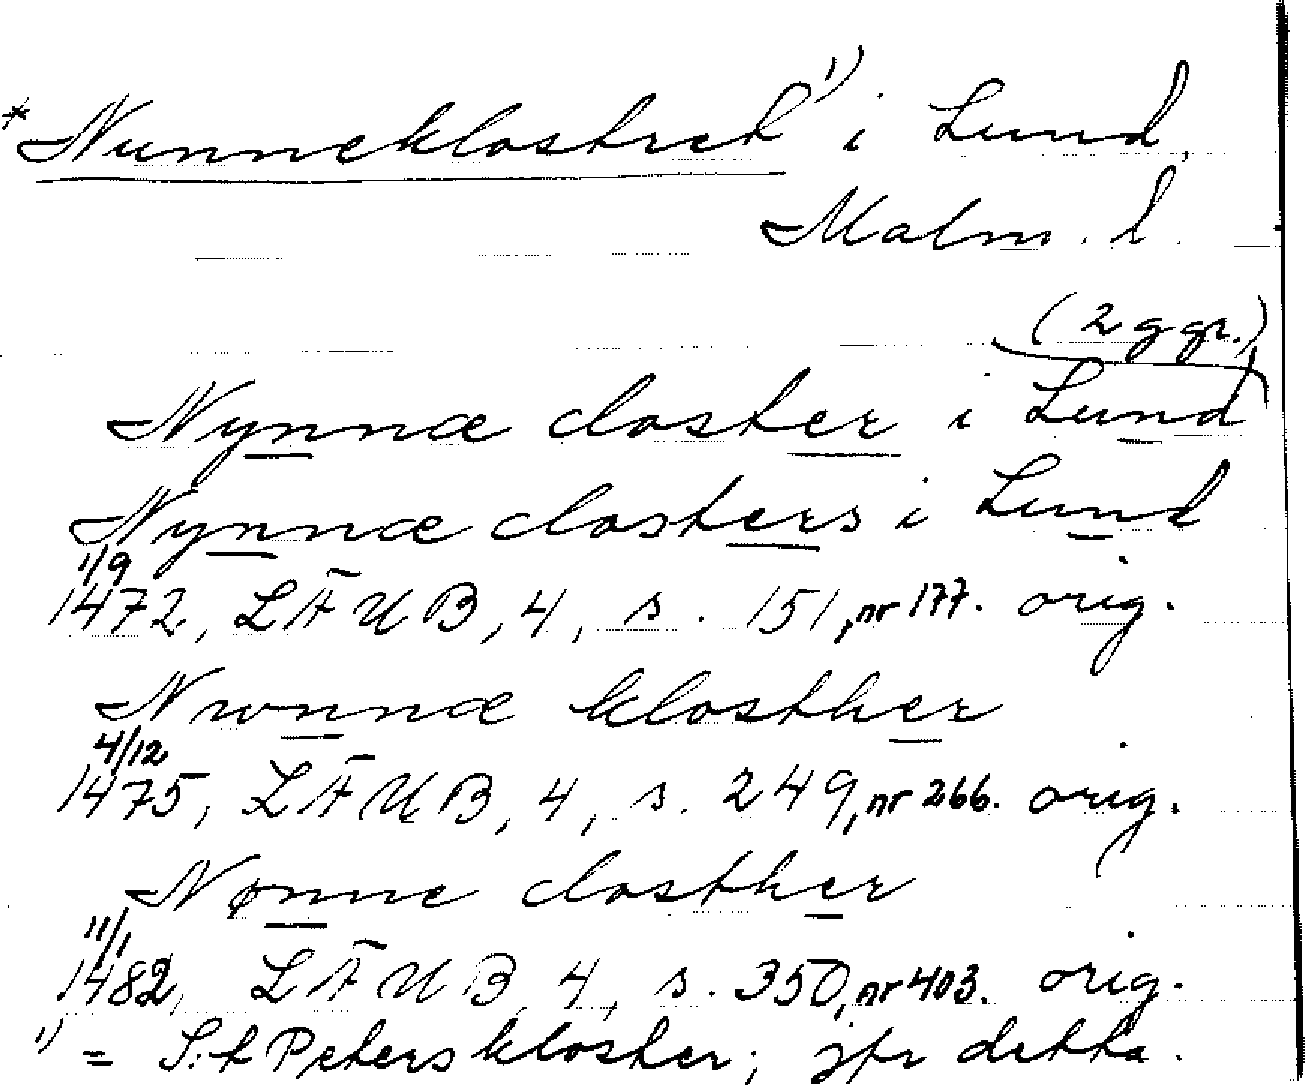 *Nunneklostret¹⁾ i Lund,
Malm. l.
(2 ggr.)
Nynnæ closter i Lund
Nynnæ closters i Lund
1/9
1472, LÄUB, 4, s. 151, nr 177. orig.
Nwnnæ klosther
4/12
1475, LÄUB, 4, s. 249, nr 266. orig.
Nønne closther
11/1
1482, LÄUB, 4, s. 350, nr 403. orig.
¹⁾ = S:t Peters kloster; jfr detta.